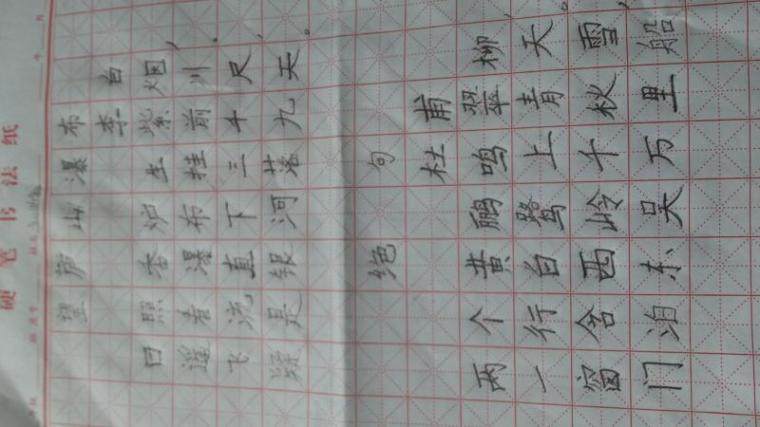 硬笔书法纸
望庐山瀑布
李白
日照香炉生紫烟，
遥看瀑布挂前川。
飞流直下三千尺，
疑是银河落九天。
绝句
杜甫
两个黄鹂鸣翠柳，
一行白鹭上青天。
窗含西岭千秋雪，
门泊东吴万里船